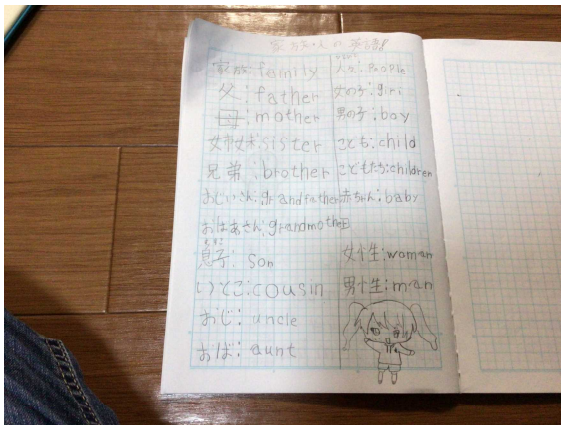 家族・人の英語
家族:family
父:father
母:mother
姉妹:sister
兄弟:brother
おじいさん:grandfather
おばあさん:grandmother
むすこ
息子:son
いとこ:cousin
おじ:uncle
おば:aunt
人々:people
女の子:giri
男の子:boy
こども:child
こどもたち:children
赤ちゃん:baby
女性:woman
男性:man